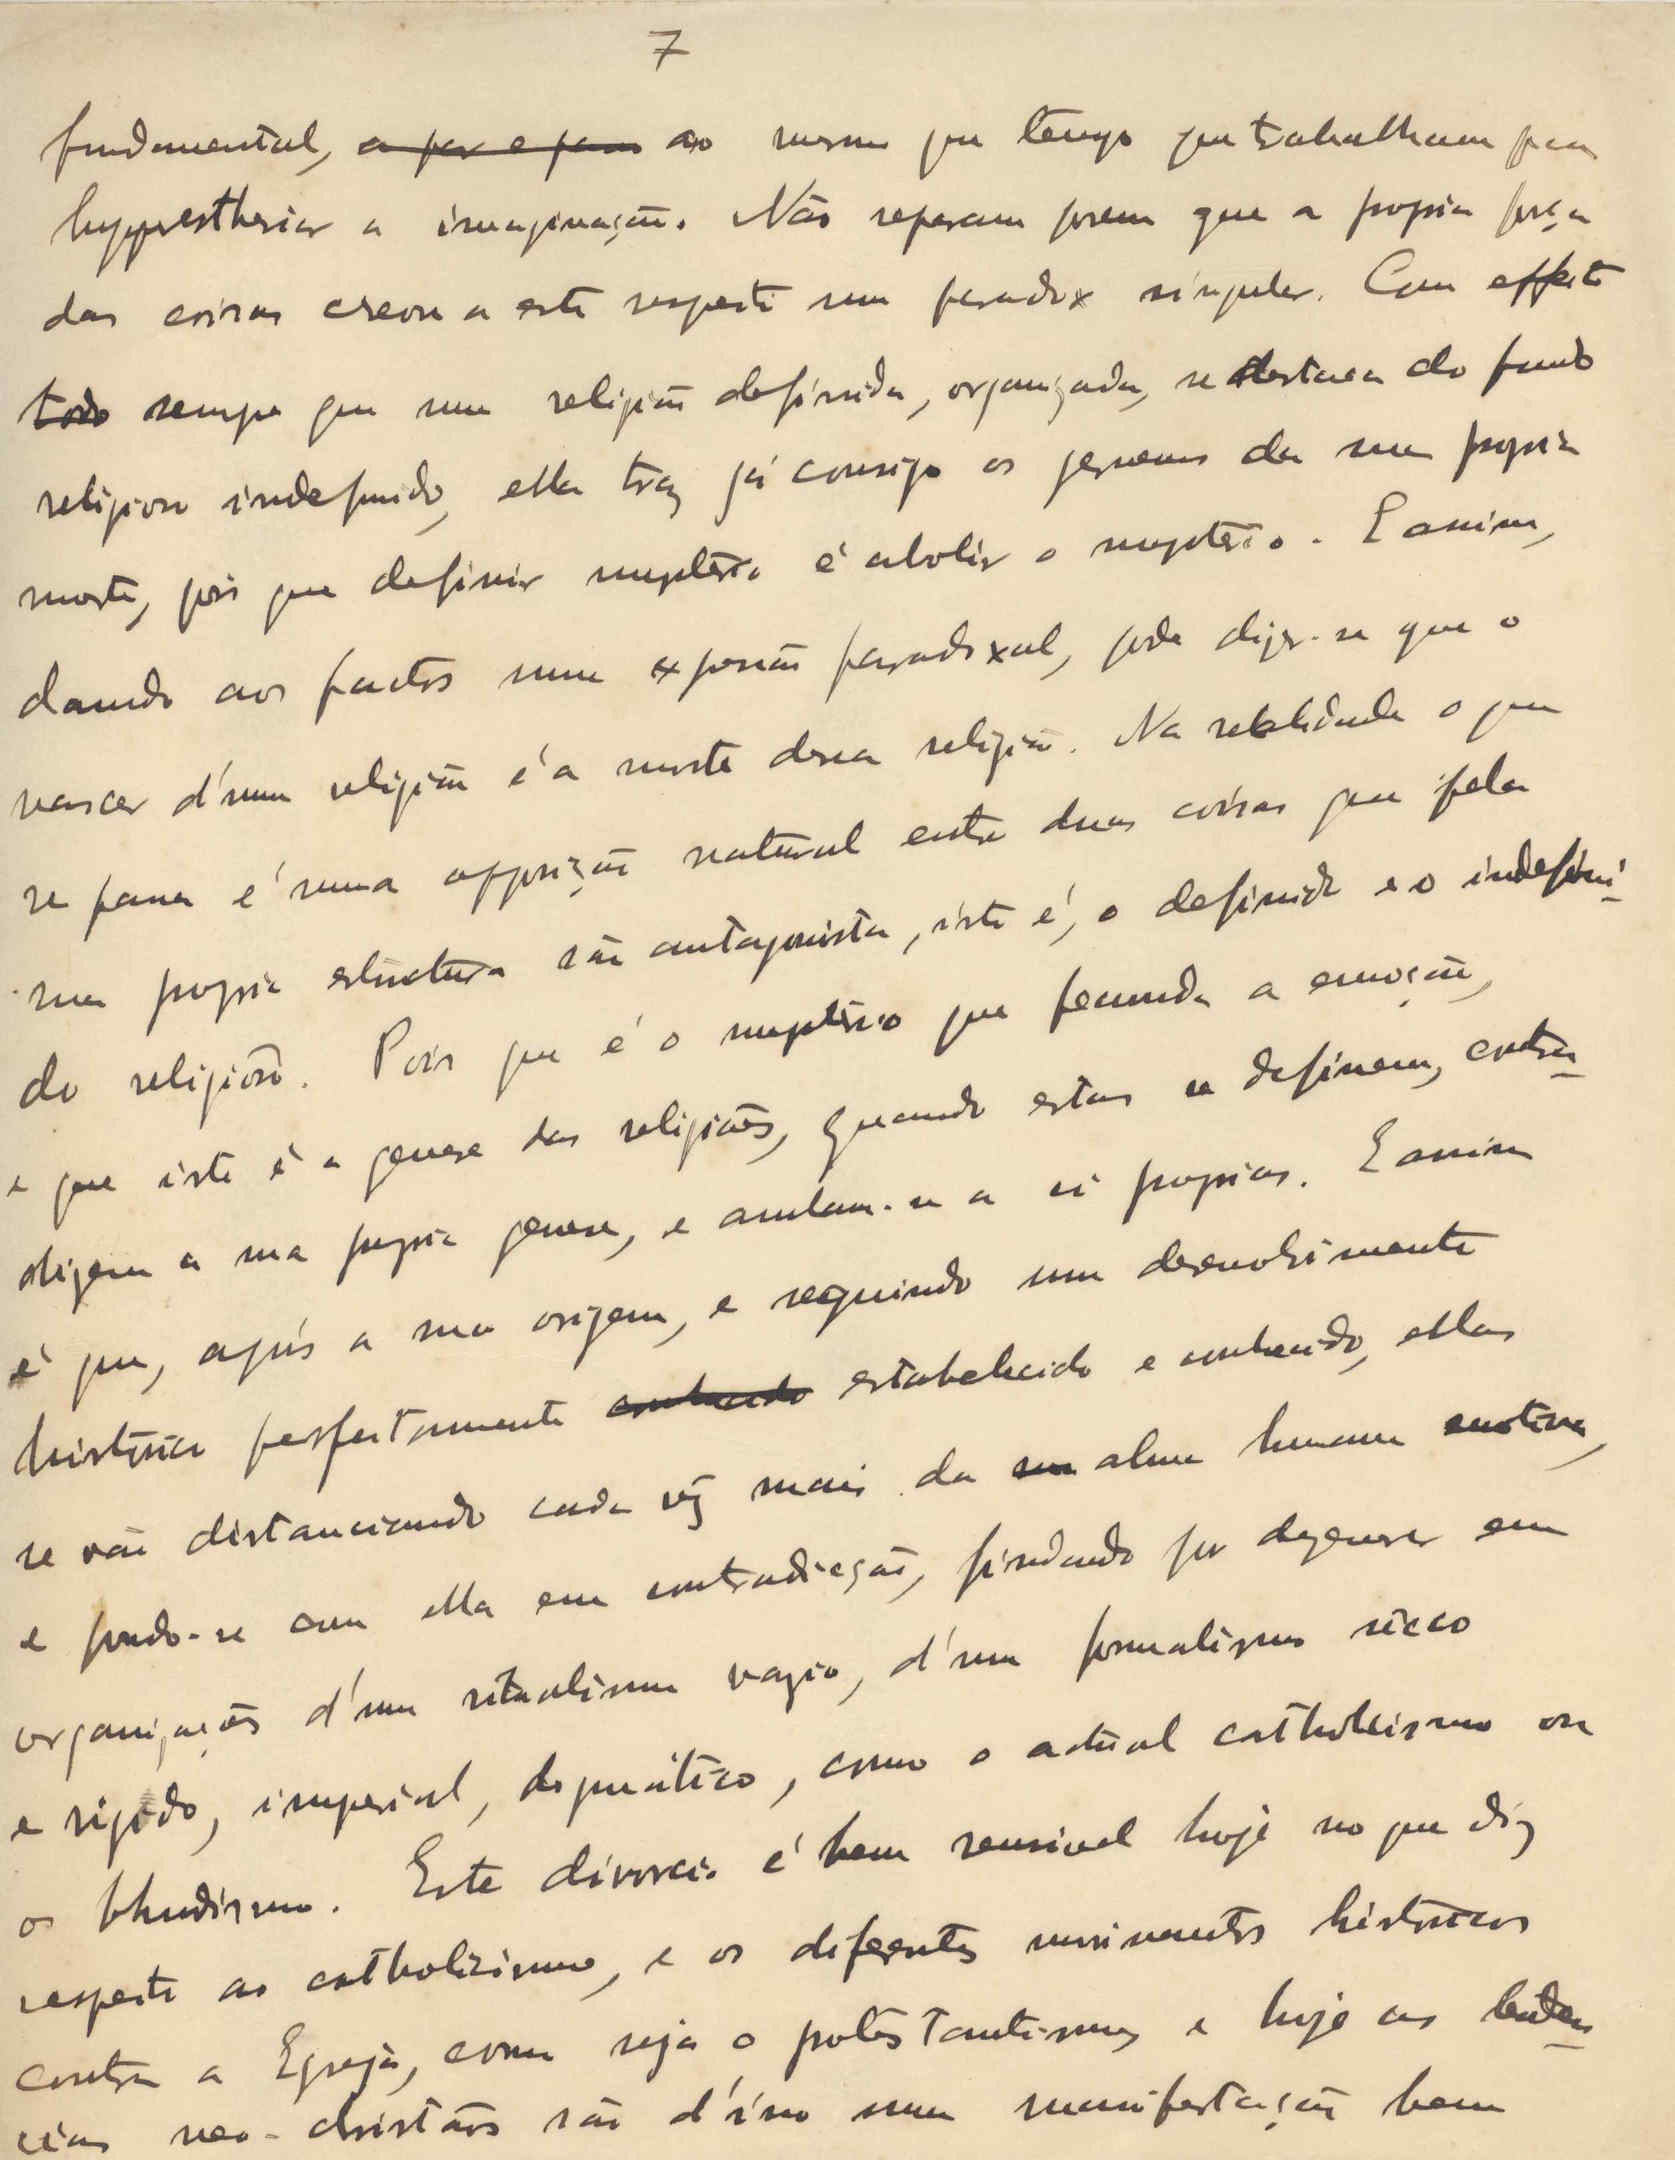 7
fundamental, a par e passo ao mesmo que tempo que trabalham para
hyperesthesiar a imaginação. Não reparam porem que a propria força
das coisas creou a este respeito um paradoxo singular. Com effeito
todo sempre que uma religião definida, organizada, se destaca do fundo
religioso indefinido, ella traz já consigo os germens da sua propria
morte, pois que definir mysterio é abolir o mysterio. E assim,
dando aos factos uma expressão paradoxal, pode dizer-se que o
nascer d'uma religião é a morte dessa religião. Na realidade o que
se passa é uma opposição natural entre duas coisas que pela
sua propria estructura são antagonistas, isto é, o definido e o indefini-
do religioso. Pois que é o mysterio que fecunda a emoção,
e que isto é a genese das religiões, quando estas se definem, contra-
dizem a sua propria genese, e anulam-se a si proprias. E assim
é que, após a sua origem, e seguindo um desenvolvimento
historico perfeitamente conhecido estabelecido e conhecido, ellas
se vão distanciando cada vez mais da sua alma humana emotiva,
e pondo-se com ella em contradicção, findando por degenerar em
organizações d'um ritualismo vazio, d'um formalismo sêcco
e rigido, imperial, dogmático, como o actual catholicismo ou
o bhudismo. Este divorcio é bem sensivel hoje no que diz
respeito ao catholicismo, e os diferentes movimentos historicos
contra a Egreja, como seja o protestantismo, e hoje as tenden-
cias neo-christãs são d'isso uma manifestação bem